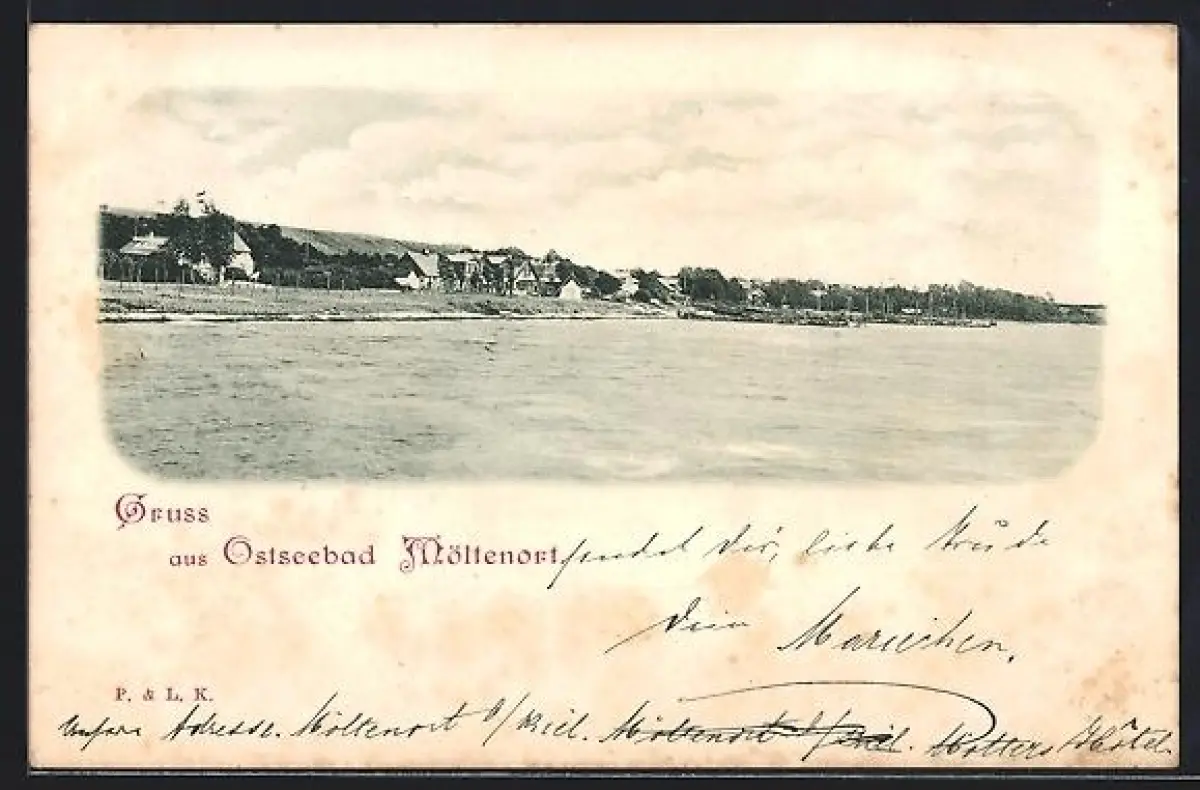 Gruss
aus Ostseebad Möltenort
sendet dir, liebe Trude
Dein Mariechen.
P. & L. K.
Unsere Adresse. Möltenort b/Kiel. Möltenort b/Kiel. Wolters Hôtel.